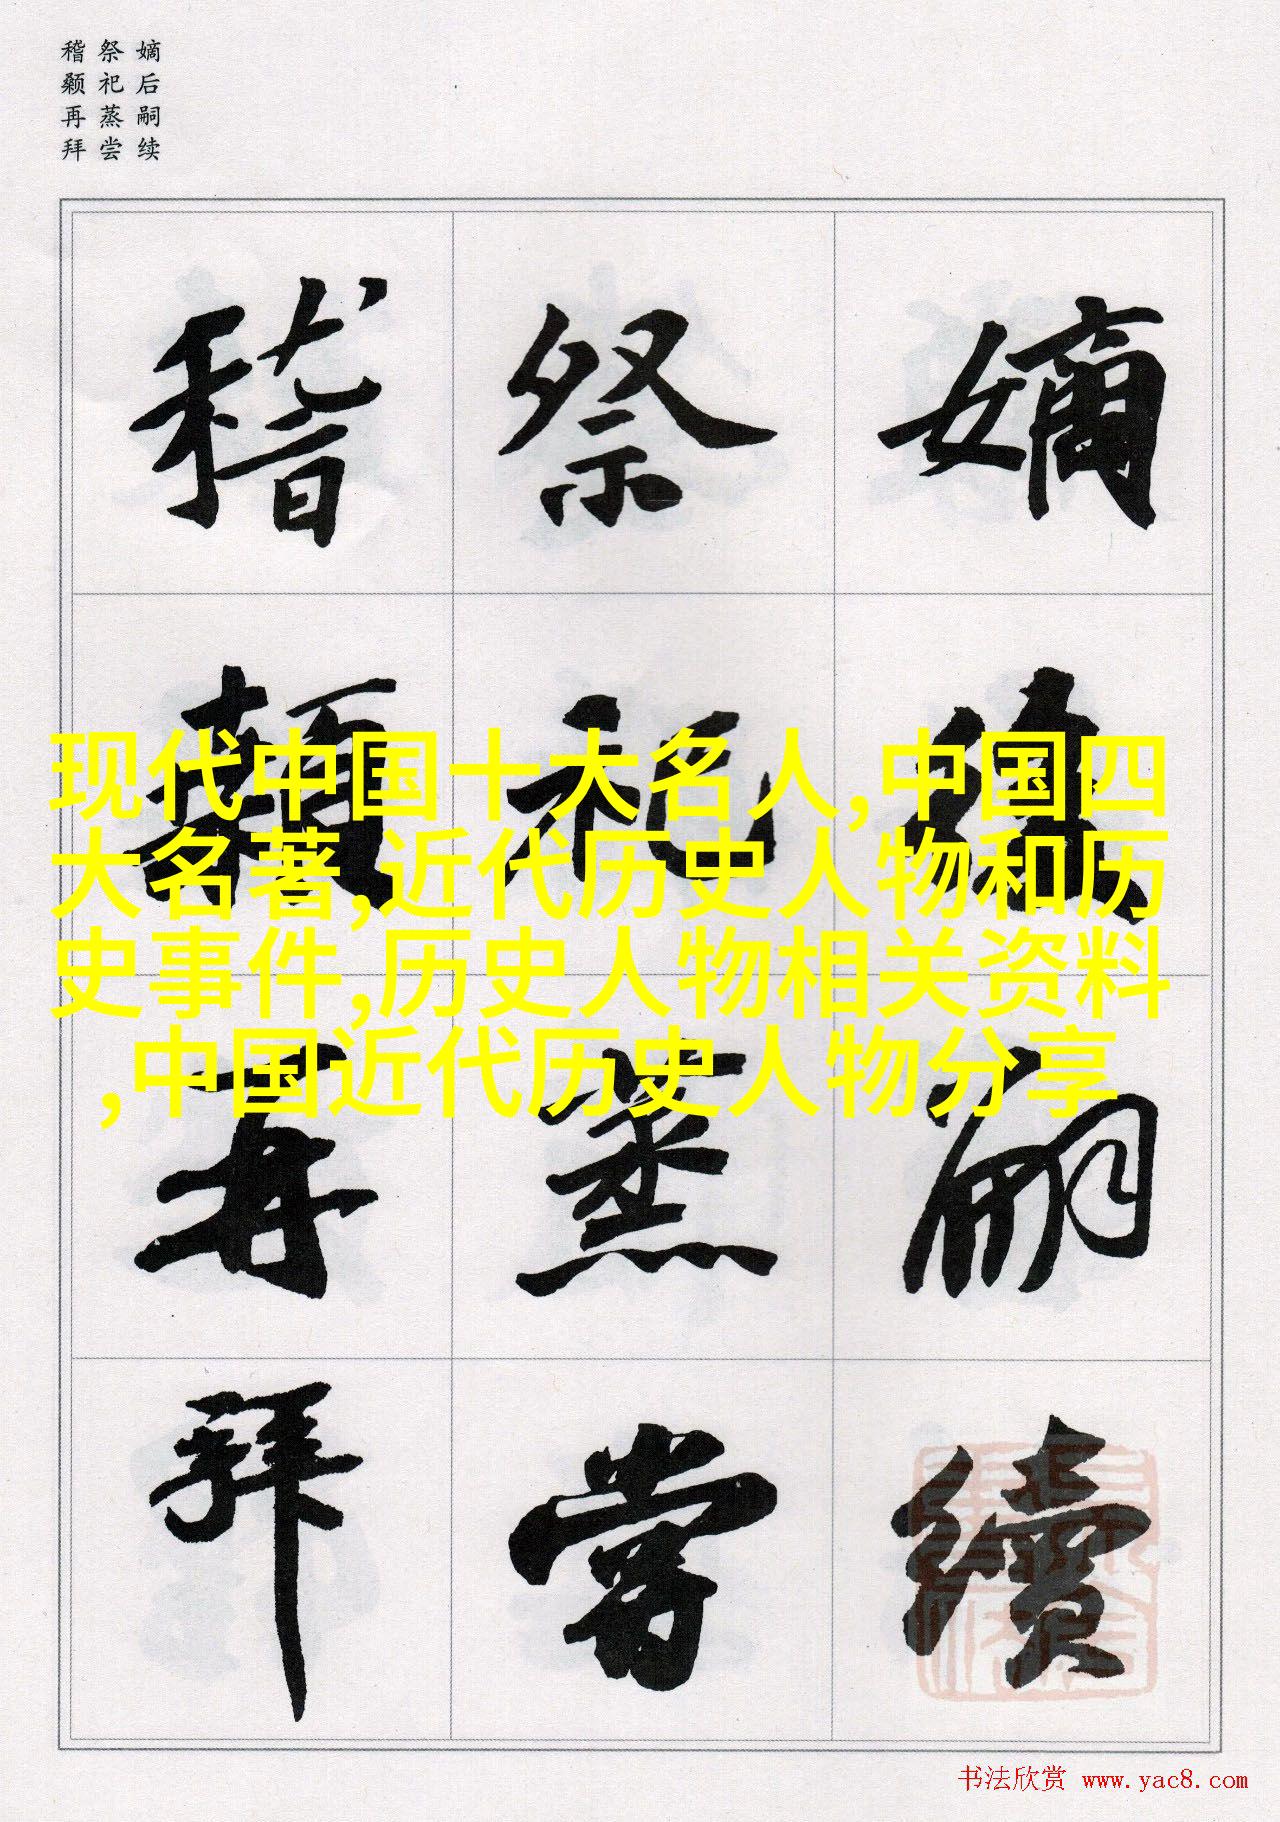 嫡后嗣续
祭祀蒸尝
稽颡再拜
嫡后嗣續
祭祀蒸嘗
稽顙再拜
现代中国十大名人,中国四
大名著,近代历史人物和历
史事件,历史人物相关资料
,中国近代历史人物分享
书法欣赏 www.yac8.com